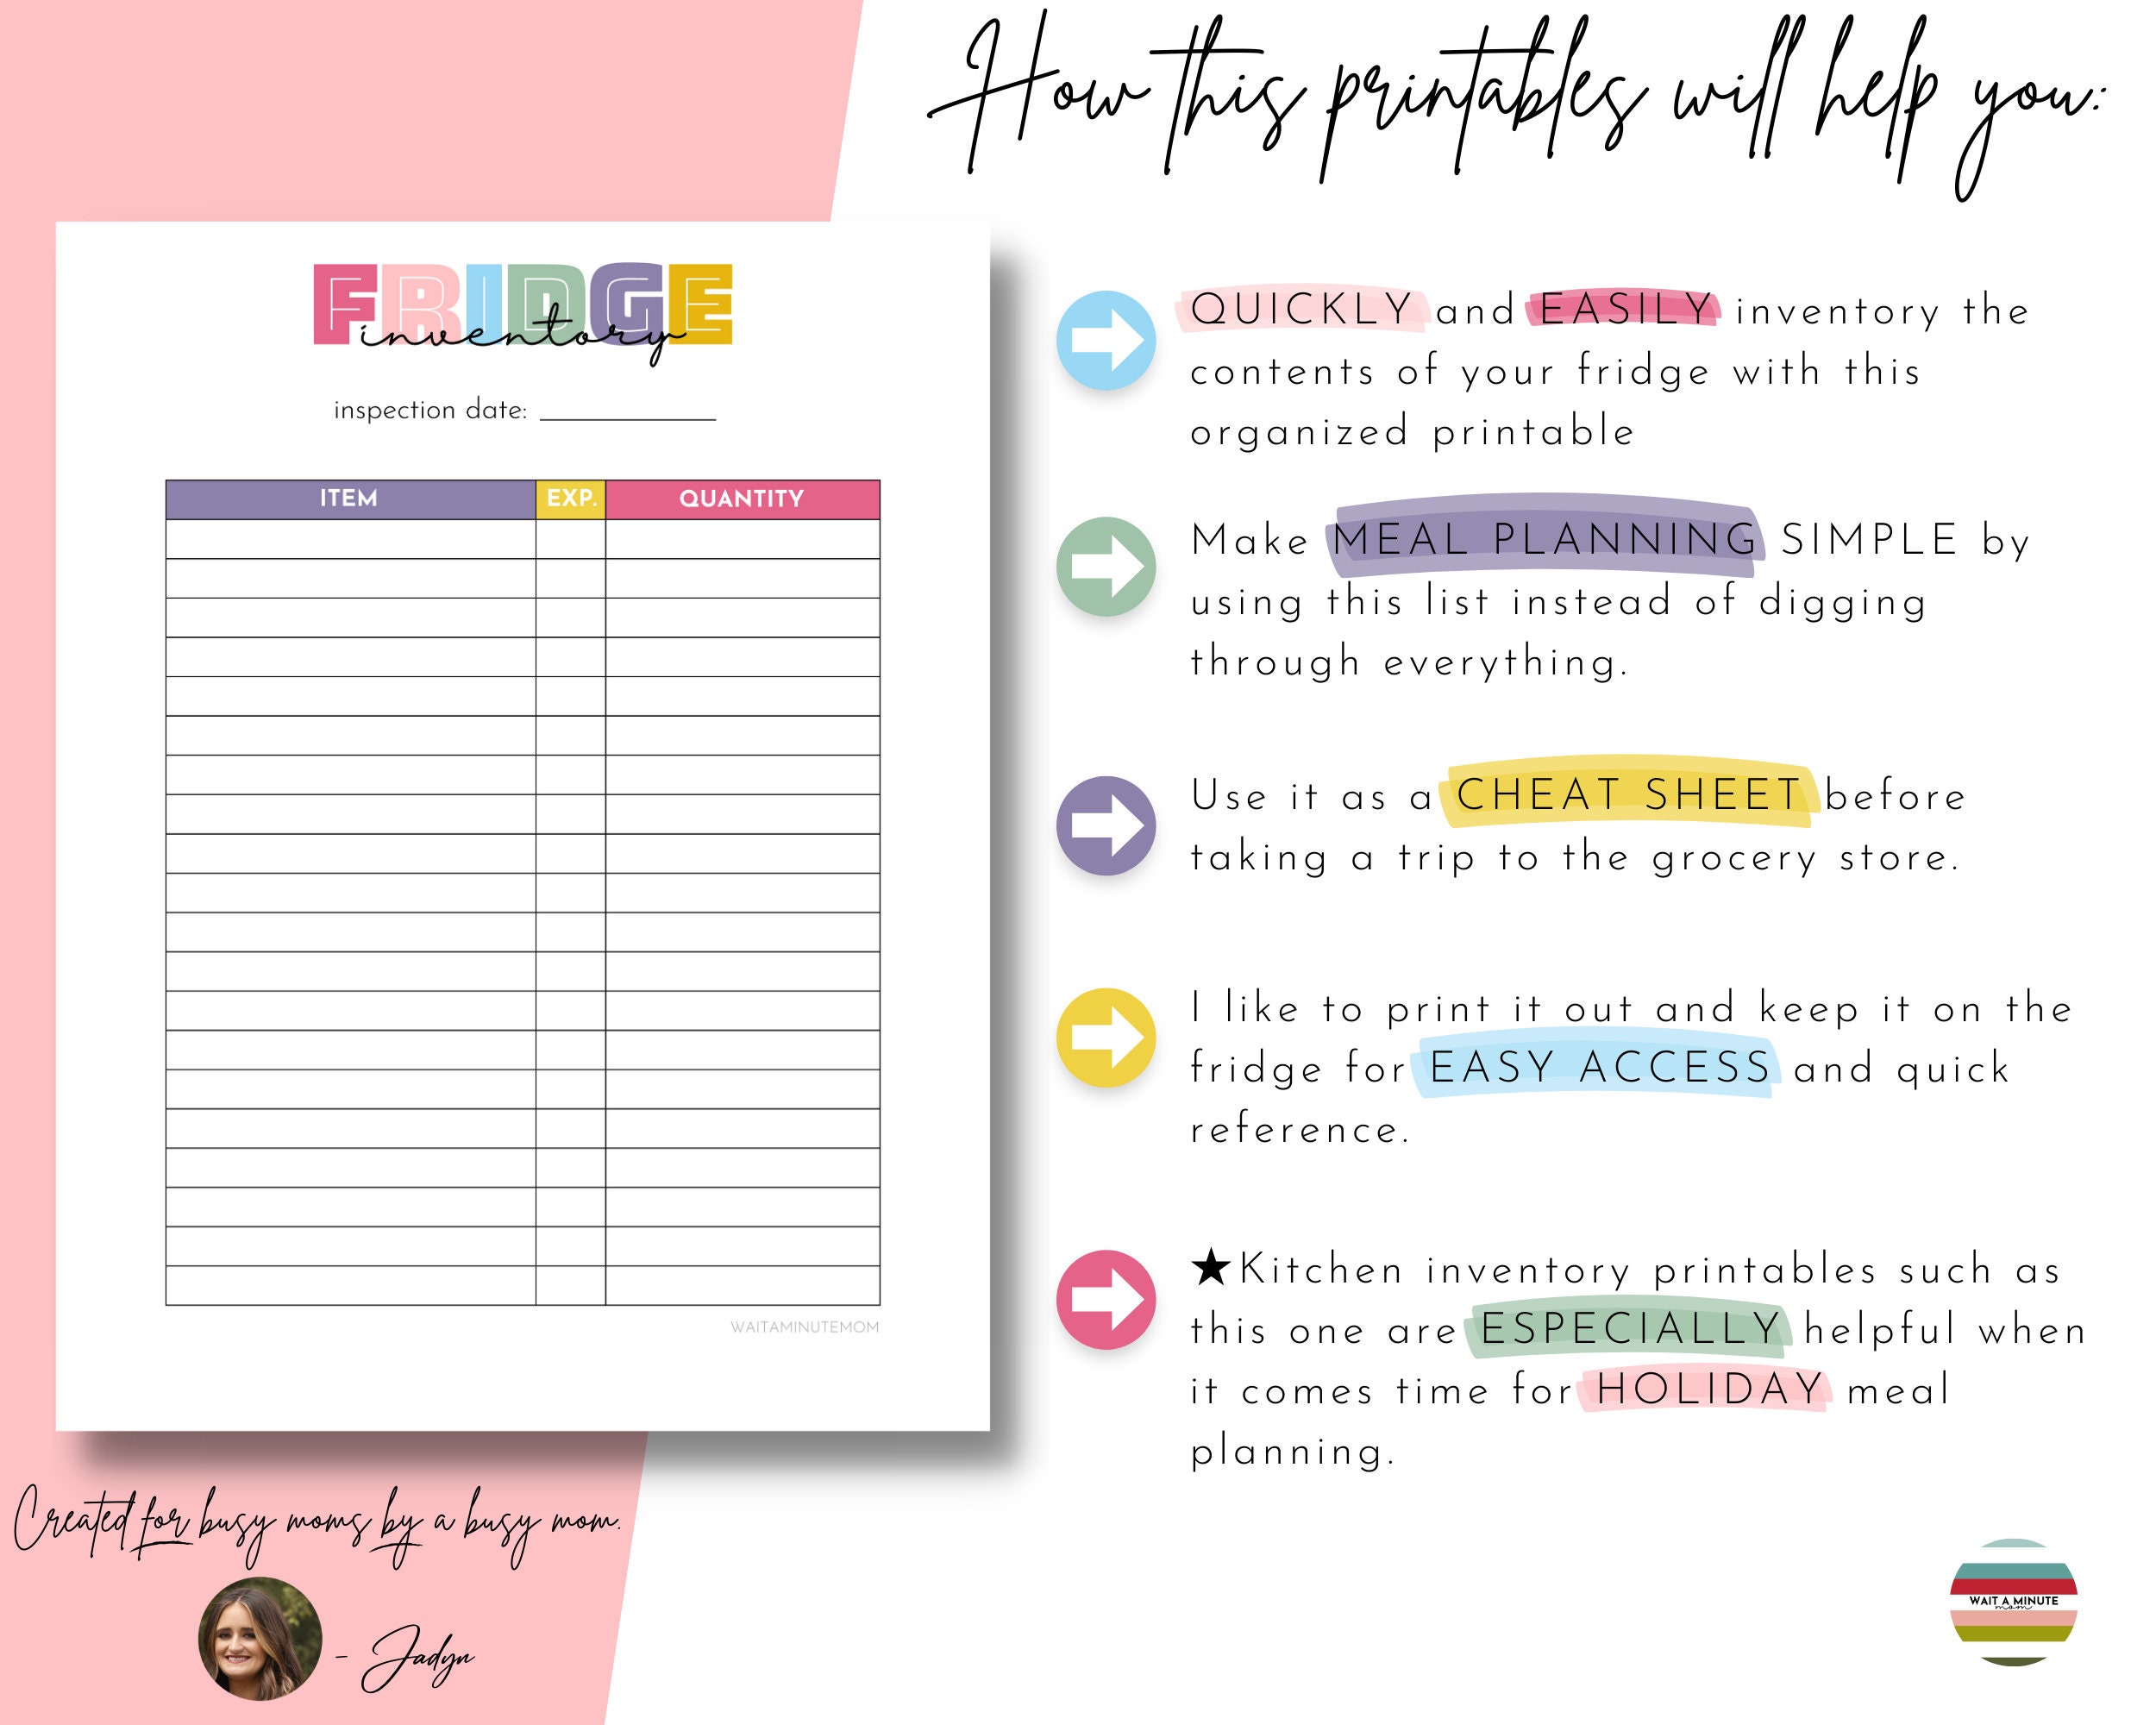 How this printables will help you:
FRIDGE
inventory
inspection date:
ITEM EXP. QUANTITY
WAITAMINUTEMOM
QUICKLY and EASILY inventory the
contents of your fridge with this
organized printable
Make MEAL PLANNING SIMPLE by
using this list instead of digging
through everything.
Use it as a CHEAT SHEET before
taking a trip to the grocery store.
I like to print it out and keep it on the
fridge for EASY ACCESS and quick
reference.
★Kitchen inventory printables such as
this one are ESPECIALLY helpful when
it comes time for HOLIDAY meal
planning.
Created for busy moms by a busy mom.
- Jadyn
WAIT A MINUTE
mom